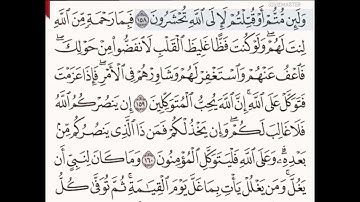 وَلَئِن مُّتُّمْ أَوْ قُتِلْتُمْ لَإِلَى ٱللَّهِ تُحْشَرُونَ ١٥٨ فَبِمَا رَحْمَةٍ مِّنَ ٱللَّهِ
لِنتَ لَهُمْ وَلَوْ كُنتَ فَظًّا غَلِيظَ ٱلْقَلْبِ لَٱنفَضُّوا۟ مِنْ حَوْلِكَ
فَٱعْفُ عَنْهُمْ وَٱسْتَغْفِرْ لَهُمْ وَشَاوِرْهُمْ فِى ٱلْأَمْرِ فَإِذَا عَزَمْتَ
فَتَوَكَّلْ عَلَى ٱللَّهِ إِنَّ ٱللَّهَ يُحِبُّ ٱلْمُتَوَكِّلِينَ ١٥٩ إِن يَنصُرْكُمُ ٱللَّهُ
فَلَا غَالِبَ لَكُمْ وَإِن يَخْذُلْكُمْ فَمَن ذَا ٱلَّذِى يَنصُرُكُم مِّنۢ
بَعْدِهِۦ وَعَلَى ٱللَّهِ فَلْيَتَوَكَّلِ ٱلْمُؤْمِنُونَ ١٦٠ وَمَا كَانَ لِنَبِىٍّ أَن
يَغُلَّ وَمَن يَغْلُلْ يَأْتِ بِمَا غَلَّ يَوْمَ ٱلْقِيَٰمَةِ ثُمَّ تُوَفَّىٰ كُلُّ